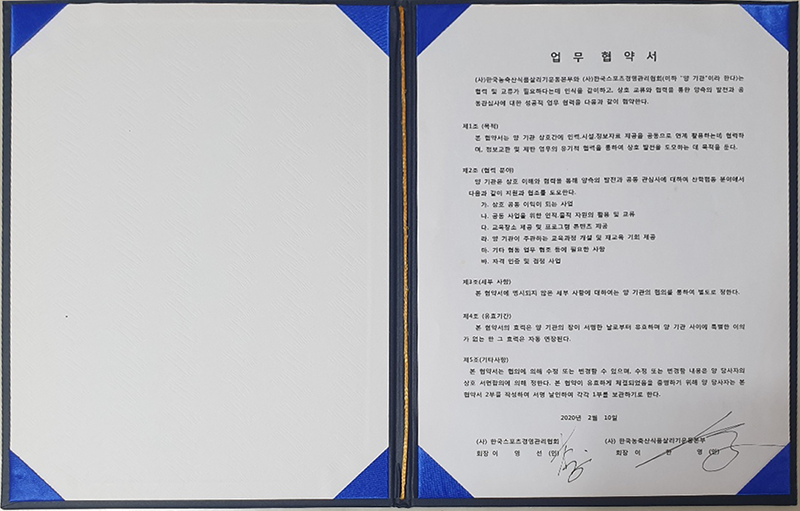 업 무 협 약 서
(사)한국농축산식품살리기운동본부와 (사)한국스포츠경영관리협회(이하 "양 기관"이라 한다)는
협력 및 교류가 필요하다는데 인식을 같이하고, 상호 교류와 협력을 통한 양측의 발전과 공
동관심사에 대한 성공적 업무 협력을 다음과 같이 협약한다.
제1조 (목적)
본 협약서는 양 기관 상호간에 인력.시설.정보자료 제공을 공동으로 연계 활용하는데 협력하
며, 정보교환 및 제반 업무의 유기적 협력을 통하여 상호 발전을 도모하는 데 목적을 둔다.
제2조 (협력 분야)
양 기관은 상호 이해와 협력을 통해 양측의 발전과 공동 관심사에 대하여 산학협동 분야에서
다음과 같이 지원과 협조를 도모한다.
가. 상호 공동 이익이 되는 사업
나. 공동 사업을 위한 인적.물적 자원의 활용 및 교류
다. 교육장소 제공 및 프로그램 콘텐츠 제공
라. 양 기관이 주관하는 교육과정 개설 및 재교육 기회 제공
마. 기타 협동 업무 협조 등에 필요한 사항
바. 자격 인증 및 검정 사업
제3조(세부 사항)
본 협약서에 명시되지 않은 세부 사항에 대하여는 양 기관의 협의를 통하여 별도로 정한다.
제4조 (유효기간)
본 협약서의 효력은 양 기관의 장이 서명한 날로부터 유효하며 양 기관 사이에 특별한 이의
가 없는 한 그 효력은 자동 연장된다.
제5조(기타사항)
본 협약서는 협의에 의해 수정 또는 변경할 수 있으며, 수정 또는 변경할 내용은 양 당사자의
상호 서면합의에 의해 정한다. 본 협약이 유효하게 체결되었음을 증명하기 위해 양 당사자는 본
협약서 2부를 작성하여 서명 날인하여 각각 1부를 보관하기로 한다.
2020년 2월 10일
(사) 한국스포츠경영관리협회 (사) 한국농축산식품살리기운동본부
회장 이 명 선 (인) 회장 이 명 (인)